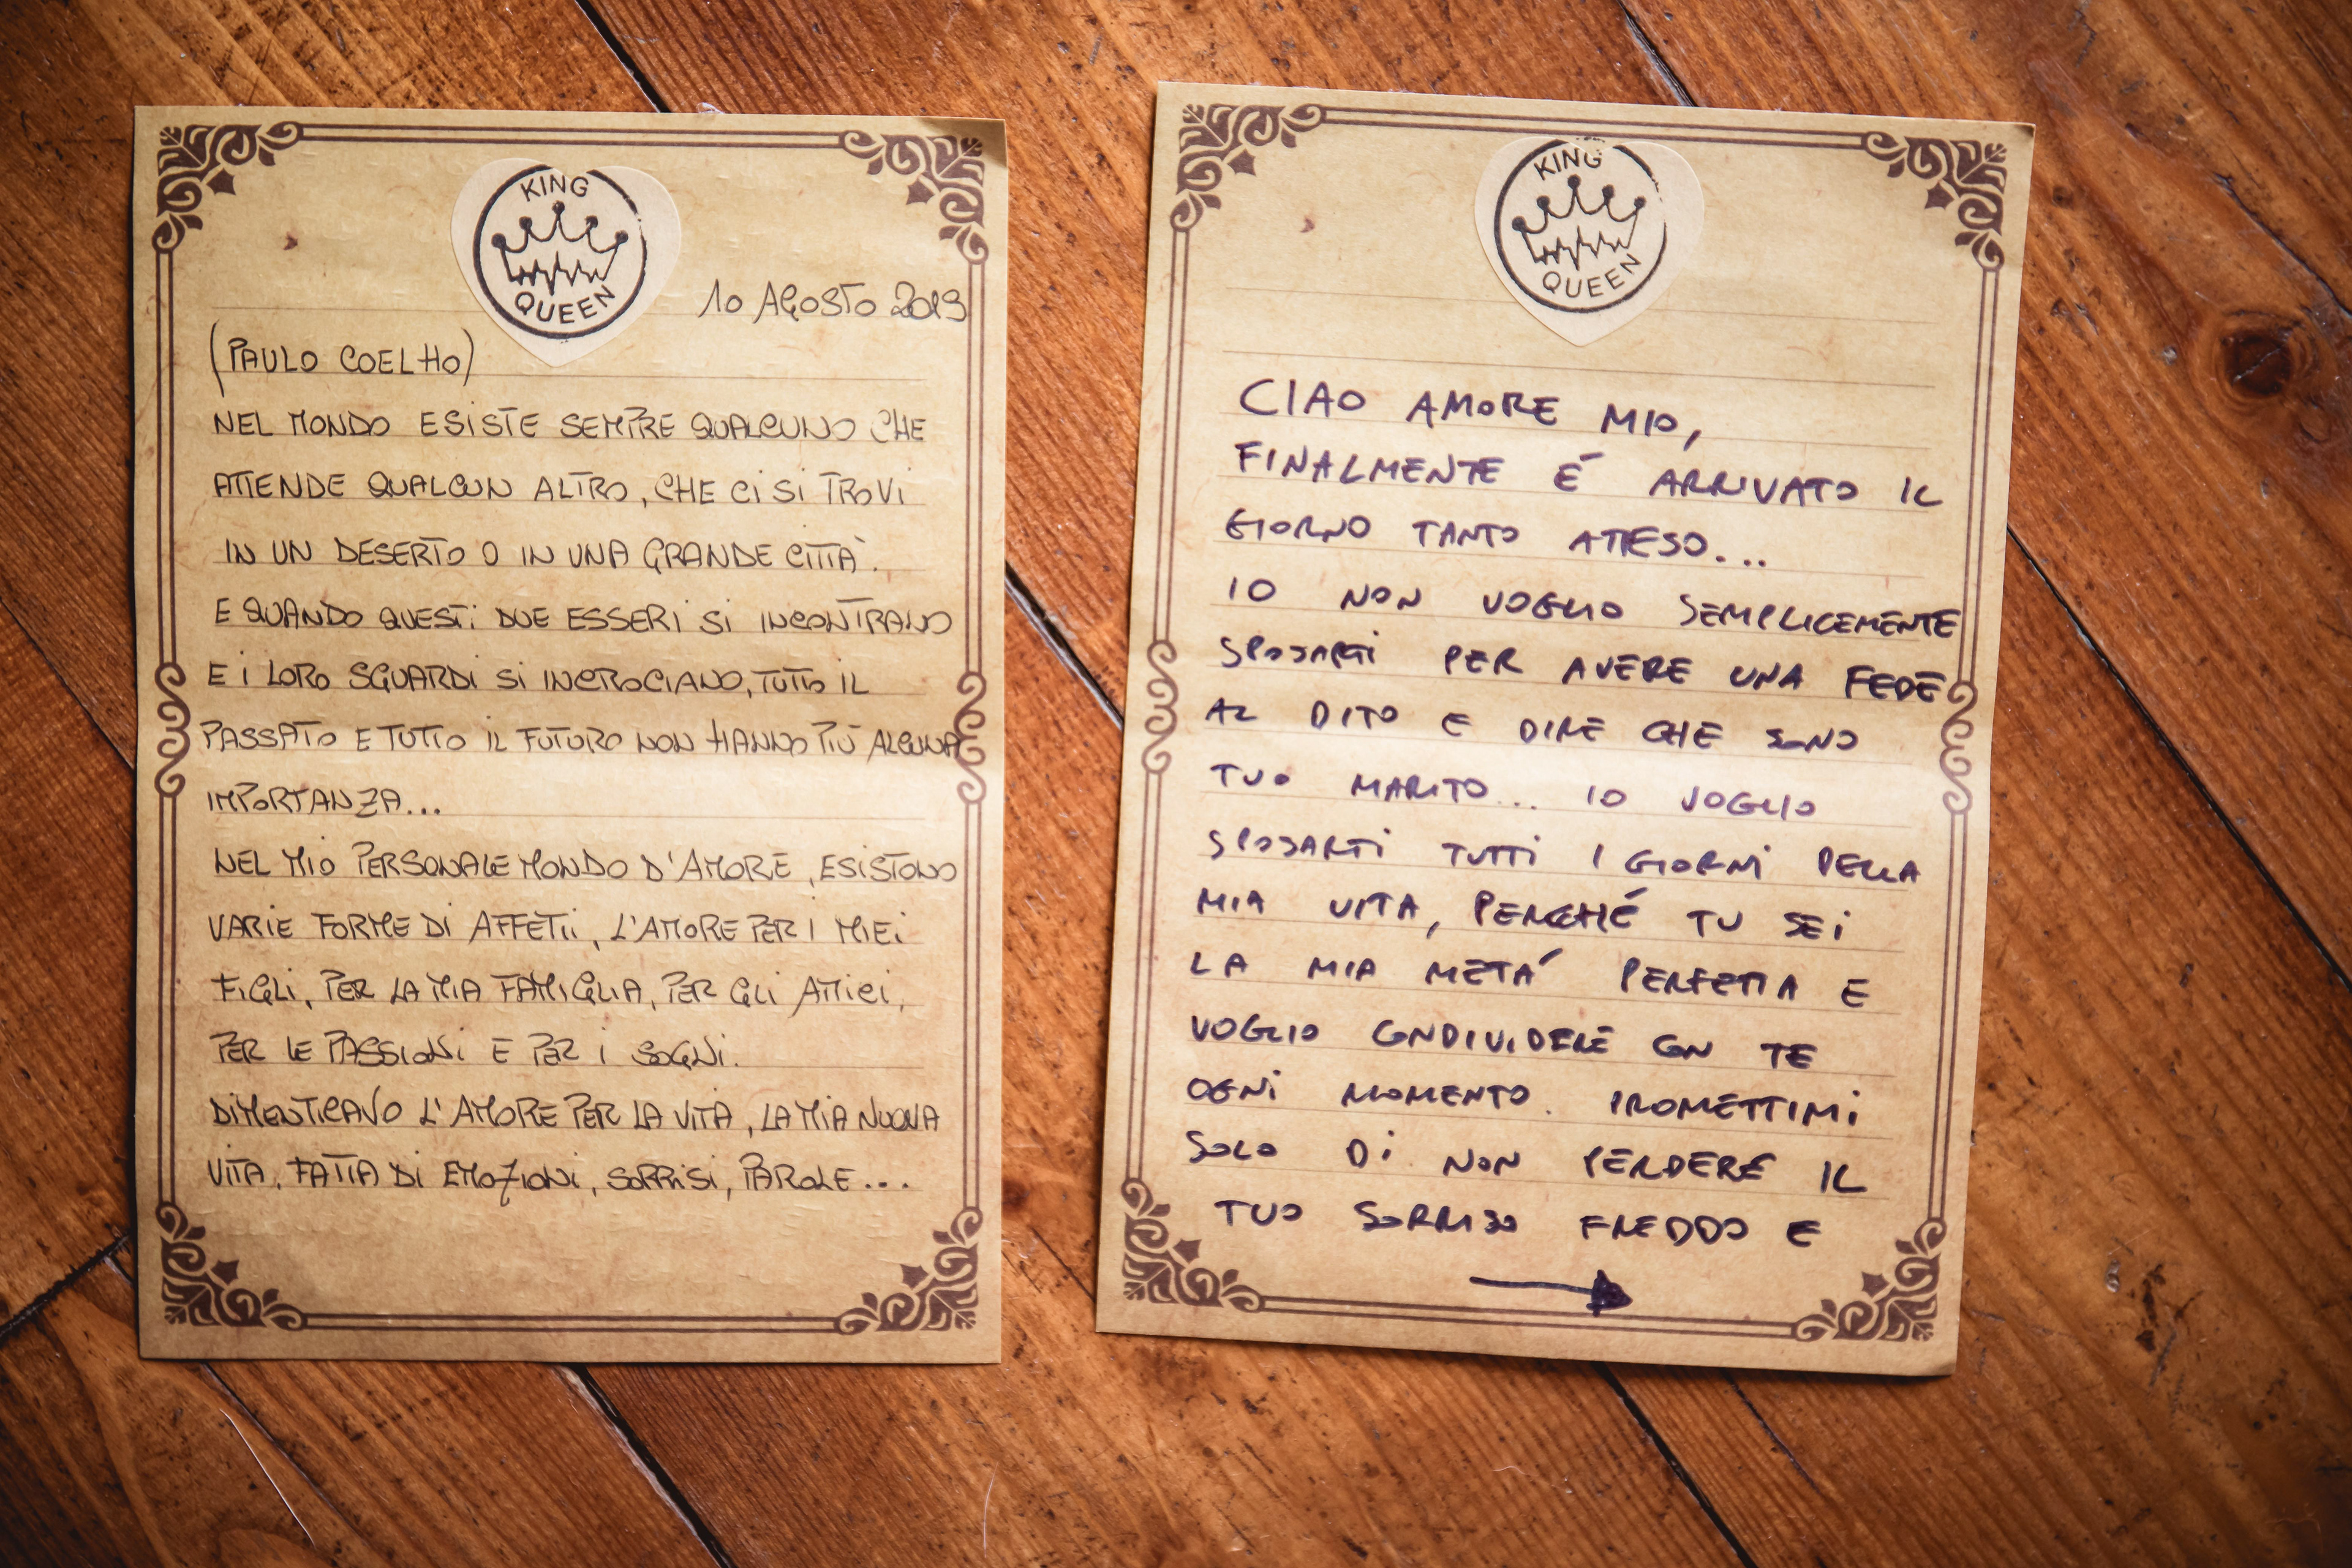 KING
QUEEN
10 AGOSTO 2019
(PAULO COELHO)
NEL MONDO ESISTE SEMPRE QUALCUNO CHE
ATTENDE QUALCUN ALTRO, CHE CI SI TROVI
IN UN DESERTO O IN UNA GRANDE CITTÀ.
E QUANDO QUESTI DUE ESSERI SI INCONTRANO
E I LORO SGUARDI SI INCROCIANO, TUTTO IL
PASSATO E TUTTO IL FUTURO NON HANNO PIÙ ALCUNA
IMPORTANZA...
NEL MIO PERSONALE MONDO D'AMORE, ESISTONO
VARIE FORME DI AFFETTI, L'AMORE PER I MIEI
FIGLI, PER LA MIA FAMIGLIA, PER GLI AMICI,
PER LE PASSIONI E PER I SOGNI.
DIMENTICAVO L'AMORE PER LA VITA, LA MIA NUOVA
VITA, FATTA DI EMOZIONI, SORRISI, PAROLE...
KING
QUEEN
CIAO AMORE MIO,
FINALMENTE É ARRIVATO IL
GIORNO TANTO ATTESO...
IO NON VOGLIO SEMPLICEMENTE
SPOSARTI PER AVERE UNA FEDE
AL DITO E DIRE CHE SONO
TUO MARITO... IO VOGLIO
SPOSARTI TUTTI I GIORNI DELLA
MIA VITA, PERCHÉ TU SEI
LA MIA METÁ PERFETTA E
VOGLIO CONDIVIDERE CON TE
OGNI MOMENTO. PROMETTIMI
SOLO DI NON PERDERE IL
TUO SORRISO FREDDO E